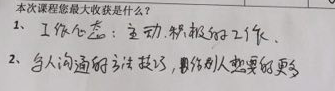 本次课程您最大收获是什么?
1、工作心态:主动.积极的工作.
2、与人沟通的方法技巧,给别人想要的更多